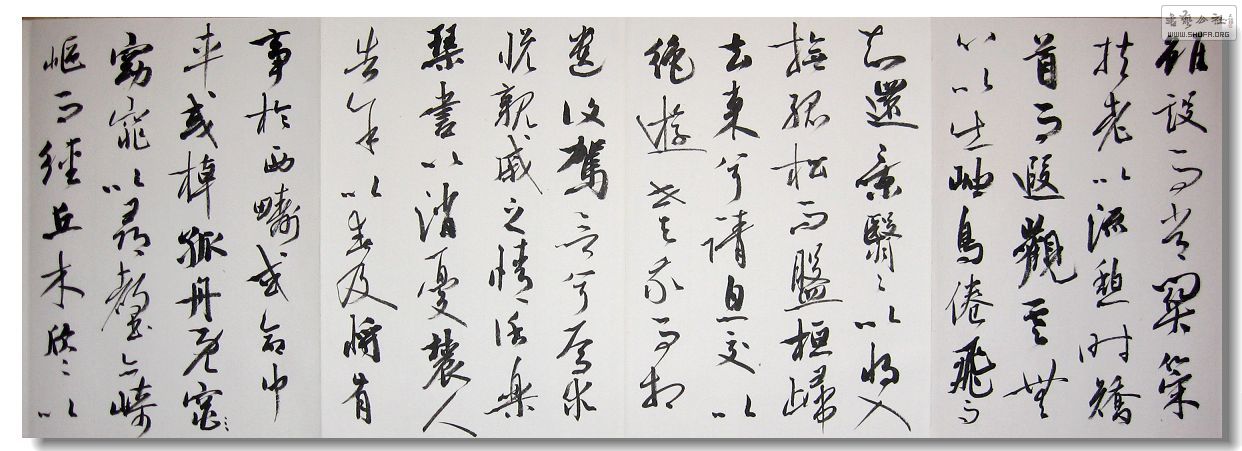 雖設而常關策
扶老以流憩时矯
首而遐觀雲無
心以出岫鳥倦飛而
知還景翳々以將入
撫孤松而盤桓歸
去来兮請息交以
絶遊世與我而相
遺復駕言兮焉求
悅親戚之情話樂
琴書以消憂農人
告余以春及將有
事於西疇或命巾
車或棹孤舟既窕
窈窕以尋壑亦崎
嶇而經丘木欣々以
書藝公社
WWW.SHUFA.ORG